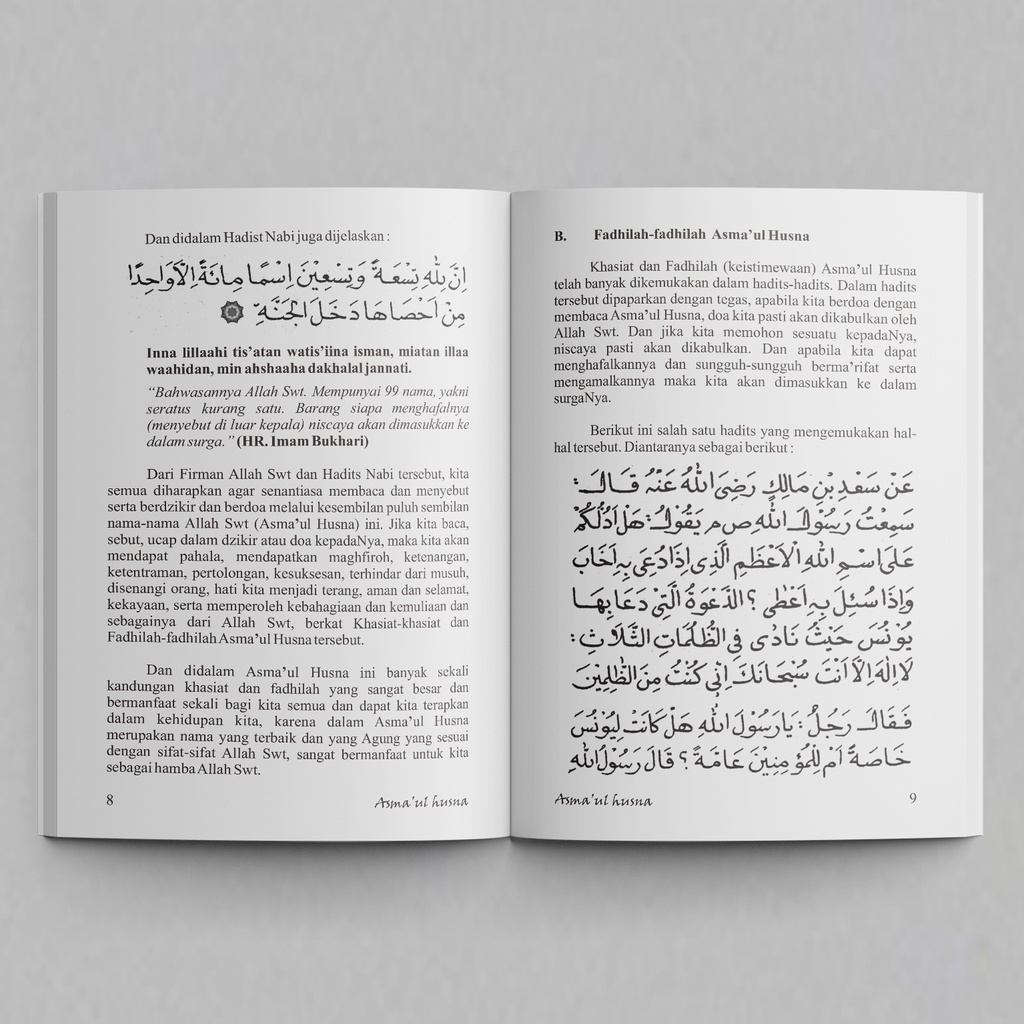 Dan didalam Hadist Nabi juga dijelaskan :
اِنَّ لِلّٰهِ تِسْعَةً وَتِسْعِيْنَ اِسْمًا مِائَةً اِلَّا وَاحِدًا
مِنْ اَحْصَاهَا دَخَلَ الْجَنَّةِ
Inna lillaahi tis’atan watis’iina isman, miatan illaa
waahidan, min ahshaaha dakhalal jannati.
“Bahwasannya Allah Swt. Mempunyai 99 nama, yakni
seratus kurang satu. Barang siapa menghafalnya
(menyebut di luar kepala) niscaya akan dimasukkan ke
dalam surga.” (HR. Imam Bukhari)
Dari Firman Allah Swt dan Hadits Nabi tersebut, kita
semua diharapkan agar senantiasa membaca dan menyebut
serta berdzikir dan berdoa melalui kesembilan puluh sembilan
nama-nama Allah Swt (Asma’ul Husna) ini. Jika kita baca,
sebut, ucap dalam dzikir atau doa kepadaNya, maka kita akan
mendapat pahala, mendapatkan maghfiroh, ketenangan,
ketentraman, pertolongan, kesuksesan, terhindar dari musuh,
disenangi orang, hati kita menjadi terang, aman dan selamat,
kekayaan, serta memperoleh kebahagiaan dan kemuliaan dan
sebagainya dari Allah Swt, berkat Khasiat-khasiat dan
Fadhilah-fadhilah Asma’ul Husna tersebut.
Dan didalam Asma’ul Husna ini banyak sekali
kandungan khasiat dan fadhilah yang sangat besar dan
bermanfaat sekali bagi kita semua dan dapat kita terapkan
dalam kehidupan kita, karena dalam Asma’ul Husna
merupakan nama yang terbaik dan yang Agung yang sesuai
dengan sifat-sifat Allah Swt, sangat bermanfaat untuk kita
sebagai hamba Allah Swt.
8 Asma’ul husna
B. Fadhilah-fadhilah Asma’ul Husna
Khasiat dan Fadhilah (keistimewaan) Asma’ul Husna
telah banyak dikemukakan dalam hadits-hadits. Dalam hadits
tersebut dipaparkan dengan tegas, apabila kita berdoa dengan
membaca Asma’ul Husna, doa kita pasti akan dikabulkan oleh
Allah Swt. Dan jika kita memohon sesuatu kepadaNya,
niscaya pasti akan dikabulkan. Dan apabila kita dapat
menghafalkannya dan sungguh-sungguh berma’rifat serta
mengamalkannya maka kita akan dimasukkan ke dalam
surgaNya.
Berikut ini salah satu hadits yang mengemukakan hal-
hal tersebut. Diantaranya sebagai berikut :
عَنْ سَعْدِ بْنِ مَالِكٍ رَضِيَ اللّٰهُ عَنْهُ قَالَ :
سَمِعْتُ رَسُوْلَ اللّٰهِ ص م يَقُوْلُ : هَلْ اَدُلُّكُمْ
عَلَى اسْمِ اللّٰهِ الْاَعْظَمِ الَّذِى اِذَا دُعِىَ بِهِ اَجَابَ
وَاِذَا سُئِلَ بِهِ اَعْطٰى ؟ الدَّعْوَةُ الَّتِيْ دَعَا بِهَا
يُوْنُسَ حَيْثُ نَادٰى فِى الظُّلُمَاتِ الثَّلَاثِ :
لَا اِلٰهَ اِلَّا اَنْتَ سُبْحَانَكَ اِنِّى كُنْتُ مِنَ الظّٰلِمِيْنَ
فَقَالَ رَجُلٌ : يَارَسُوْلَ اللّٰهِ هَلْ كَانَتْ لِيُوْنُسَ
خَاصَةً اَمْ لِلْمُؤْمِنِيْنَ عَامَّةً ؟ قَالَ رَسُوْلُ اللّٰهِ
Asma’ul husna 9